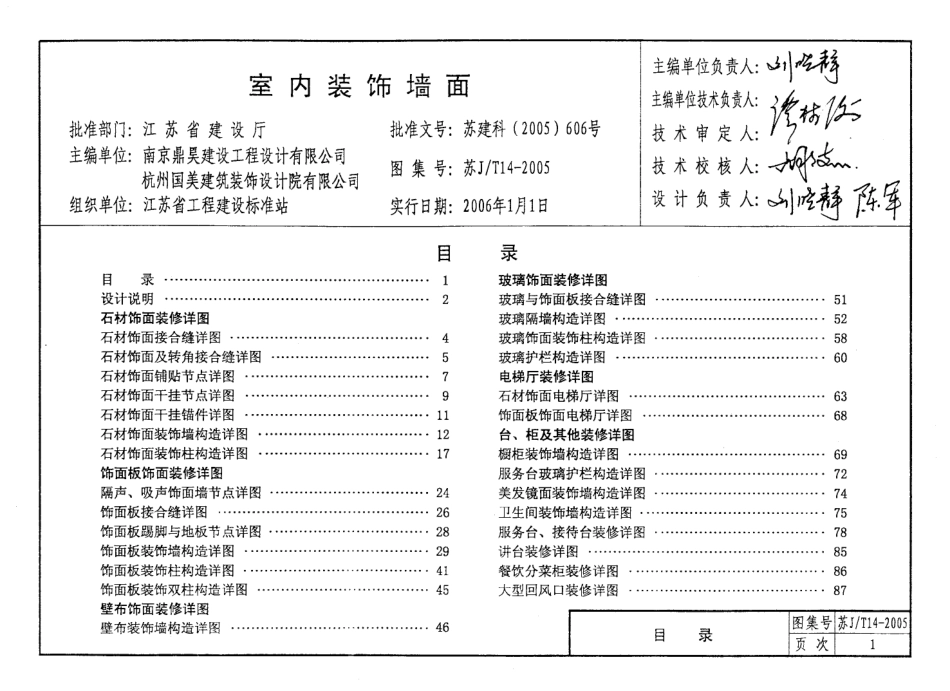 室内装饰墙面
批准部门：江苏省建设厅
主编单位：南京鼎昊建设工程设计有限公司
杭州国美建筑装饰设计院有限公司
组织单位：江苏省工程建设标准站
批准文号：苏建科（2005）606号
图集号：苏J/T14-2005
实行日期：2006年1月1日
主编单位负责人：
主编单位技术负责人：
技术审定人：
技术校核人：
设计负责人：
目 录
目 录 1
设计说明 2
石材饰面装修详图
石材饰面接合缝详图 4
石材饰面及转角接合缝详图 5
石材饰面铺贴节点详图 7
石材饰面干挂节点详图 9
石材饰面干挂锚件详图 11
石材饰面装饰墙构造详图 12
石材饰面装饰柱构造详图 17
饰面板饰面装修详图
隔声、吸声饰面墙节点详图 24
饰面板接合缝详图 26
饰面板踢脚与地板节点详图 28
饰面板装饰墙构造详图 29
饰面板装饰柱构造详图 41
饰面板装饰双柱构造详图 45
壁布饰面装修详图
壁布装饰墙构造详图 46
玻璃饰面装修详图
玻璃与饰面板接合缝详图 51
玻璃隔墙构造详图 52
玻璃饰面装饰柱构造详图 58
玻璃护栏构造详图 60
电梯厅装修详图
石材饰面电梯厅详图 63
饰面板饰面电梯厅详图 68
台、柜及其他装修详图
橱柜装饰墙构造详图 69
服务台玻璃护栏构造详图 72
美发镜面装饰墙构造详图 74
卫生间装饰墙构造详图 75
服务台、接待台装修详图 78
讲台装修详图 85
餐饮分菜柜装修详图 86
大型回风口装修详图 87
目 录
图集号 苏J/T14-2005
页次 1